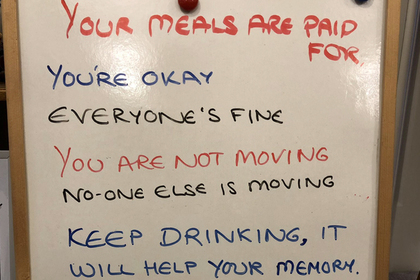 YOUR MEALS ARE PAID
FOR,
YOU'RE OKAY
EVERYONE'S FINE
YOU ARE NOT MOVING
NO-ONE ELSE IS MOVING
KEEP DRINKING, IT
WILL HELP YOUR MEMORY.